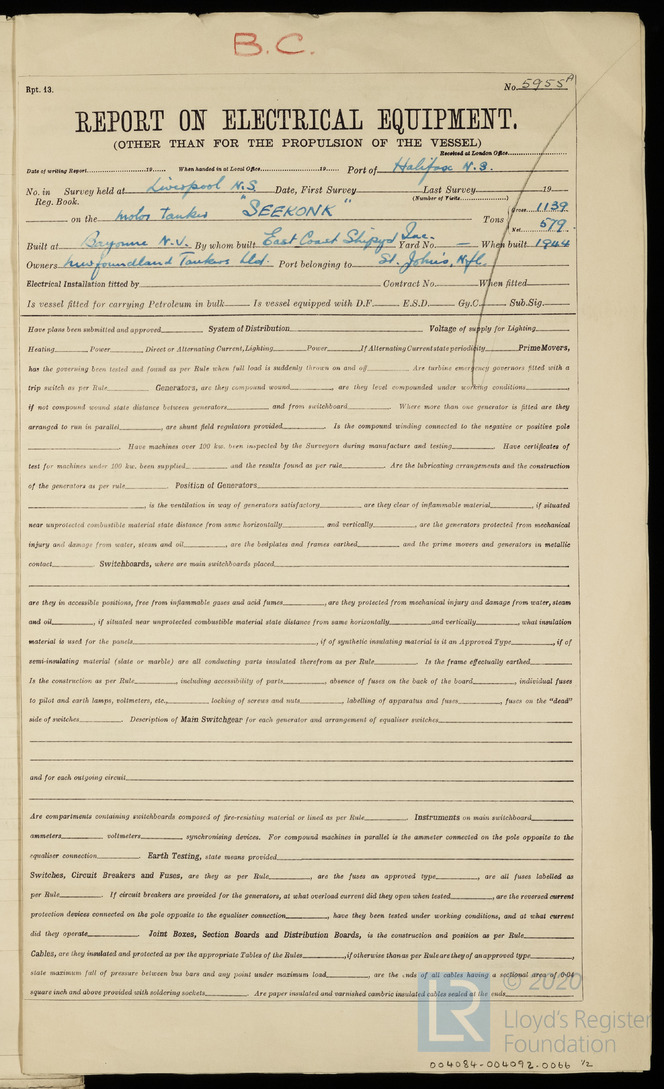 B.C.
Rpt. 13. No. 5955A
REPORT ON ELECTRICAL EQUIPMENT.
(OTHER THAN FOR THE PROPULSION OF THE VESSEL)
Received at London Office
Date of writing Report 19 When handed in at Local Office 19 Port of Halifax N.S.
No. in Survey held at Liverpool N.S. Date, First Survey Last Survey 19
Reg. Book. (Number of Visits)
on the motor tanker "SEEKONK" Tons Gross 1139
Net 579
Built at Bayonne N.J. By whom built East Coast Shipyd Inc. Yard No. — When built 1944
Owners Newfoundland Tankers Ltd. Port belonging to St. John's, Nfl.
Electrical Installation fitted by Contract No. When fitted
Is vessel fitted for carrying Petroleum in bulk Is vessel equipped with D.F. E.S.D. Gy.C. Sub.Sig.
Have plans been submitted and approved System of Distribution Voltage of supply for Lighting
Heating Power Direct or Alternating Current, Lighting Power If Alternating Current state periodicity Prime Movers,
has the governing been tested and found as per Rule when full load is suddenly thrown on and off Are turbine emergency governors fitted with a
trip switch as per Rule Generators, are they compound wound , are they level compounded under working conditions ,
if not compound wound state distance between generators and from switchboard Where more than one generator is fitted are they
arranged to run in parallel , are shunt field regulators provided Is the compound winding connected to the negative or positive pole
Have machines over 100 kw. been inspected by the Surveyors during manufacture and testing Have certificates of
test for machines under 100 kw. been supplied and the results found as per rule Are the lubricating arrangements and the construction
of the generators as per rule Position of Generators
, is the ventilation in way of generators satisfactory are they clear of inflammable material , if situated
near unprotected combustible material state distance from same horizontally and vertically , are the generators protected from mechanical
injury and damage from water, steam and oil , are the bedplates and frames earthed and the prime movers and generators in metallic
contact Switchboards, where are main switchboards placed
are they in accessible positions, free from inflammable gases and acid fumes , are they protected from mechanical injury and damage from water, steam
and oil , if situated near unprotected combustible material state distance from same horizontally and vertically , what insulation
material is used for the panels , if of synthetic insulating material is it an Approved Type , if of
semi-insulating material (slate or marble) are all conducting parts insulated therefrom as per Rule Is the frame effectually earthed
Is the construction as per Rule , including accessibility of parts , absence of fuses on the back of the board , individual fuses
to pilot and earth lamps, voltmeters, etc., locking of screws and nuts , labelling of apparatus and fuses , fuses on the "dead"
side of switches Description of Main Switchgear for each generator and arrangement of equaliser switches
and for each outgoing circuit
Are compartments containing switchboards composed of fire-resisting material or lined as per Rule Instruments on main switchboard
ammeters voltmeters synchronising devices. For compound machines in parallel is the ammeter connected on the pole opposite to the
equaliser connection Earth Testing, state means provided
Switches, Circuit Breakers and Fuses, are they as per Rule , are the fuses an approved type , are all fuses labelled as
per Rule If circuit breakers are provided for the generators, at what overload current did they open when tested , are the reversed current
protection devices connected on the pole opposite to the equaliser connection , have they been tested under working conditions, and at what current
did they operate Joint Boxes, Section Boards and Distribution Boards, is the construction and position as per Rule
Cables, are they insulated and protected as per the appropriate Tables of the Rules , if otherwise than as per Rule are they of an approved type ,
state maximum fall of pressure between bus bars and any point under maximum load , are the ends of all cables having a sectional area of 0·04
square inch and above provided with soldering sockets Are paper insulated and varnished cambric insulated cables sealed at the ends
© 2020
LR Lloyd's Register
Foundation
004084-004092-0066 1/2